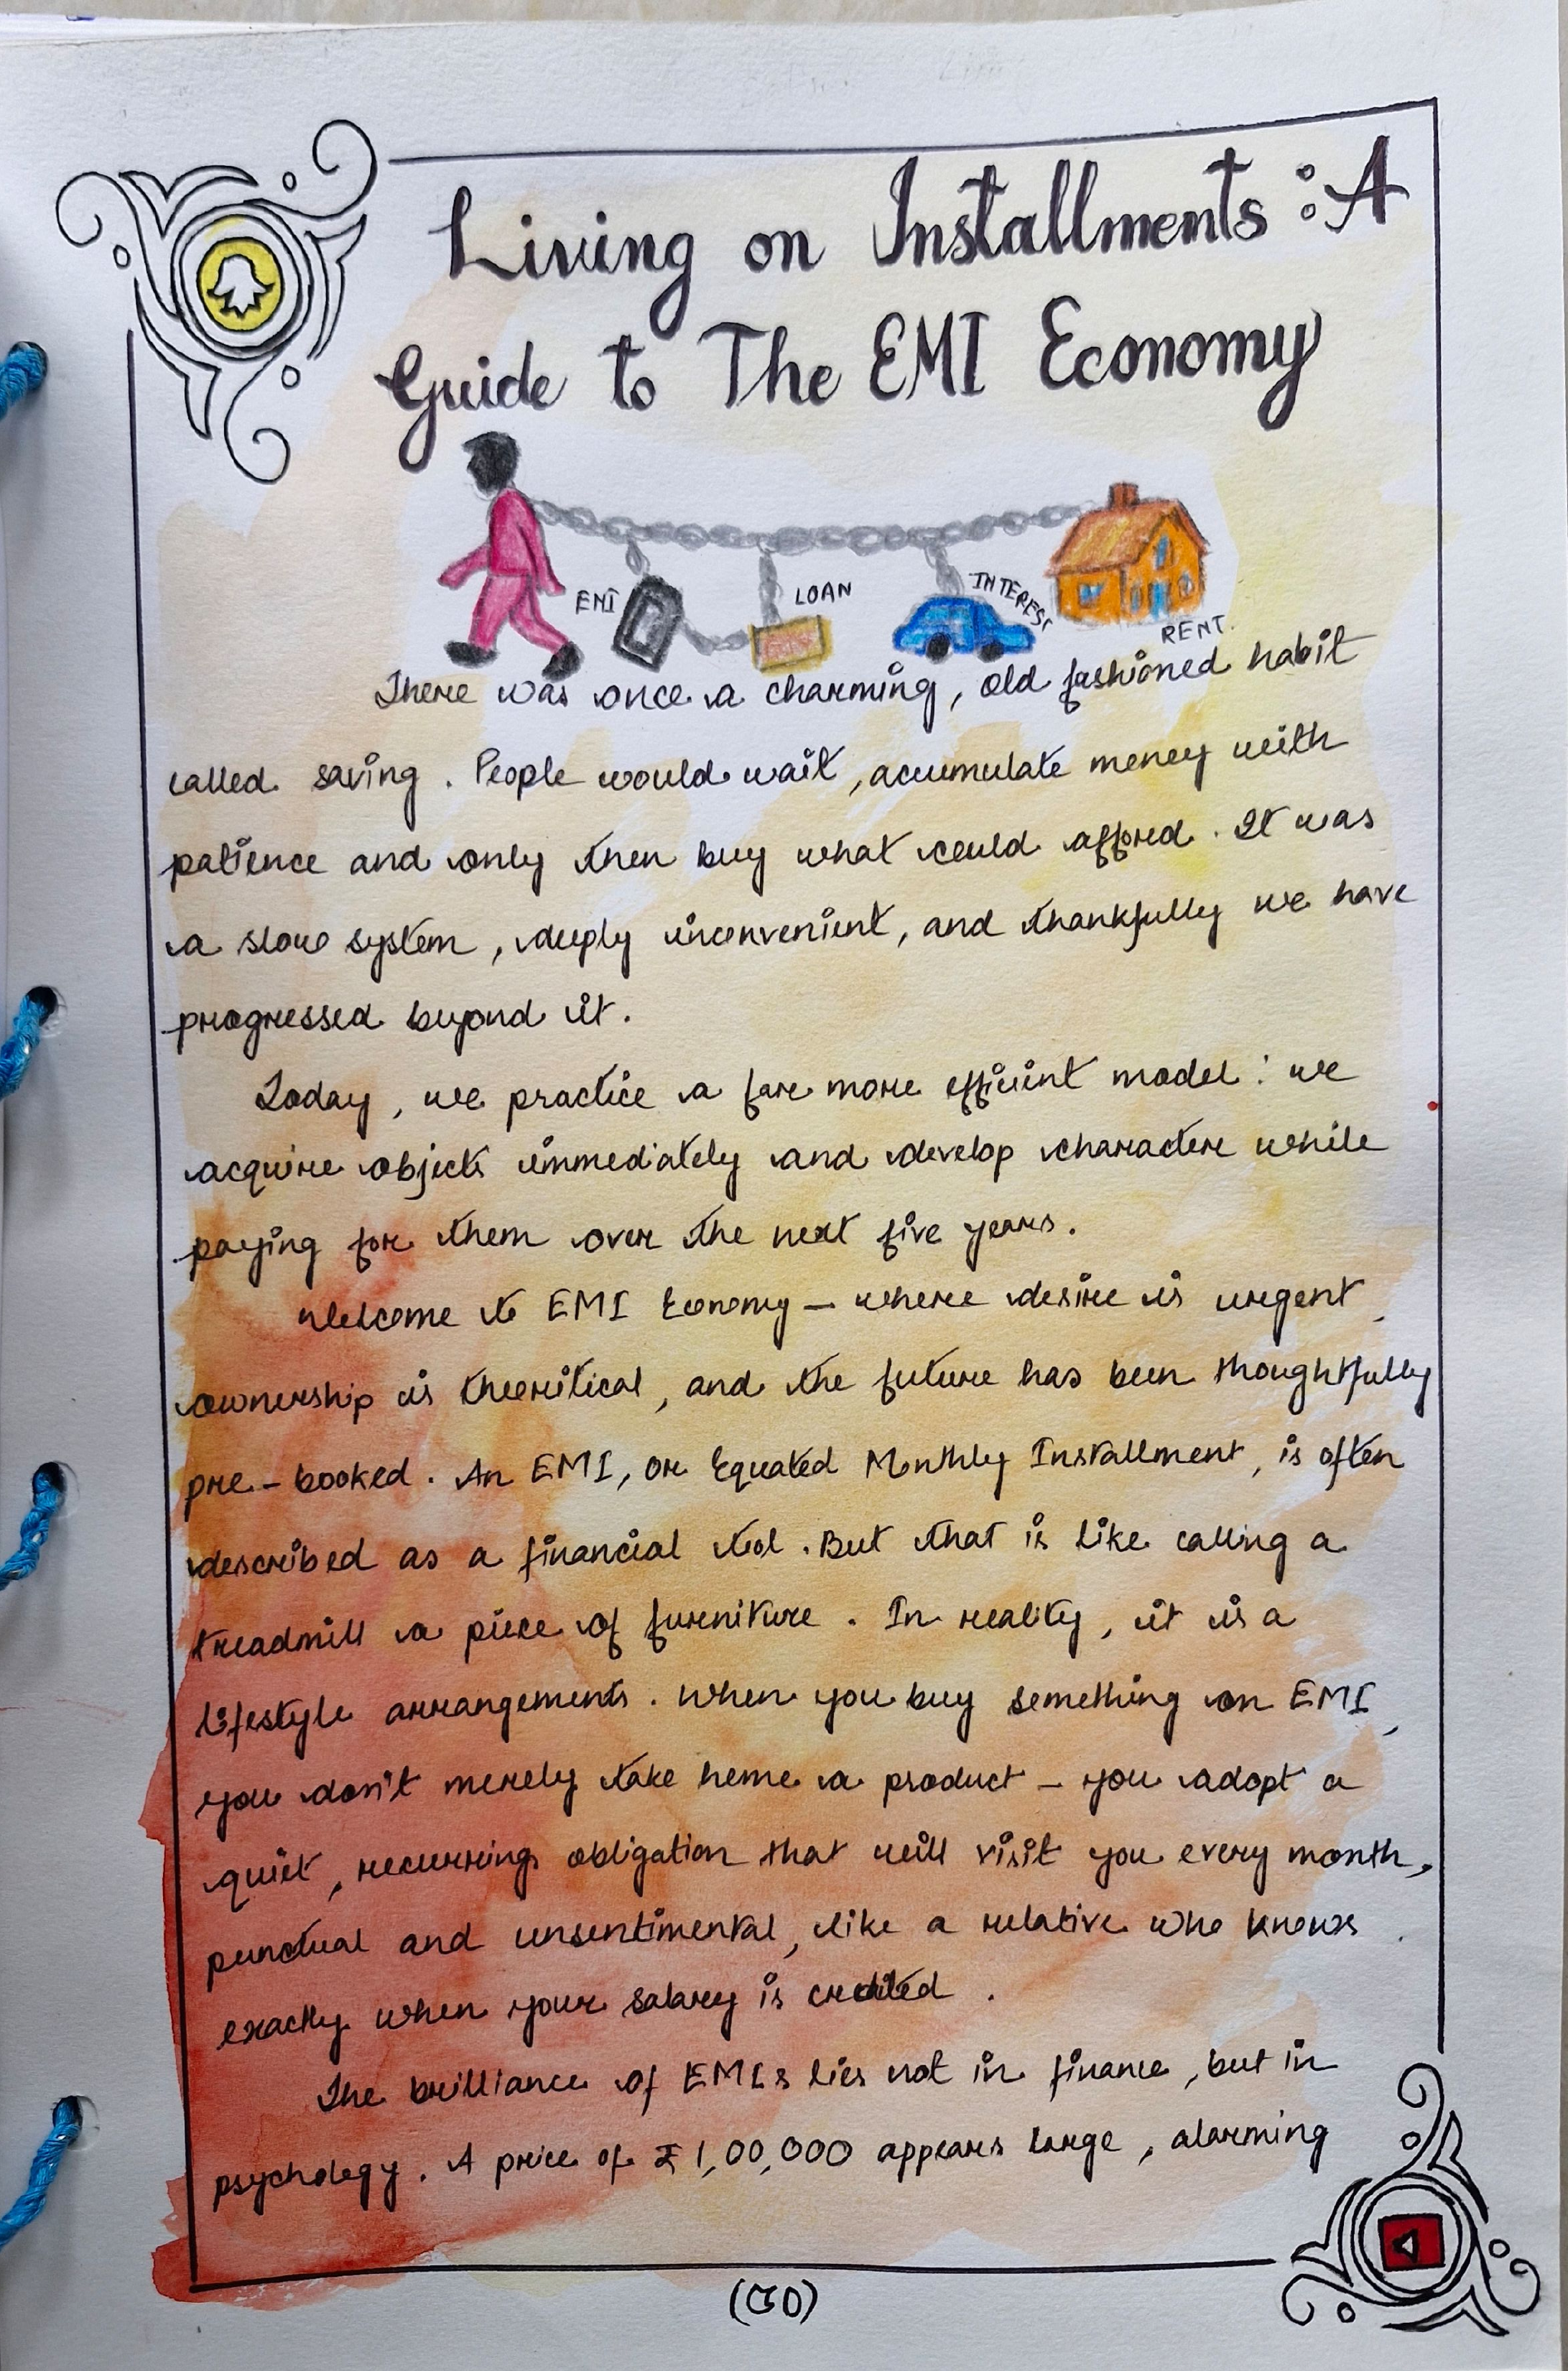 Living on Installments : A
Guide to The EMI Economy
EMI
LOAN
INTEREST
RENT
There was once a charming, old fashioned habit
called saving. People would wait, accumulate money with
patience and only then buy what could afford. It was
a slow system, deeply inconvenient, and thankfully we have
progressed beyond it.
Today, we practice a far more efficient model : we
acquire objects immediately and develop character while
paying for them over the next five years.
Welcome to EMI Economy – where desire is urgent,
ownership is theoritical, and the future has been thoughtfully
pre-booked. An EMI, or Equated Monthly Installment, is often
described as a financial tool. But that is like calling a
treadmill a piece of furniture. In reality, it is a
lifestyle arrangements. When you buy something on EMI,
you don't merely take home a product – you adopt a
quiet, recurring obligation that will visit you every month,
punctual and unsentimental, like a relative who knows
exactly when your salary is credited.
The brilliance of EMIs lies not in finance, but in
psychology. A price of ₹1,00,000 appears large, alarming